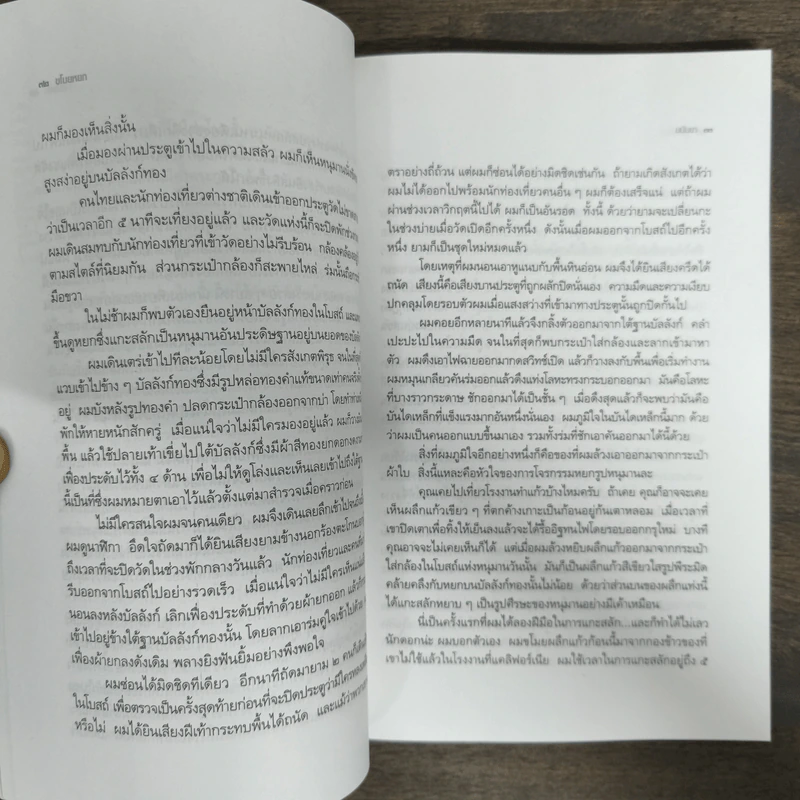 ๗๒ ขโมยหยก
ผมก็มองเห็นสิ่งนั้น
เมื่อมองผ่านประตูเข้าไปในความสลัว ผมก็เห็นหนุมานนั่ง
สูงสง่าอยู่บนบัลลังก์ทอง
คนไทยและนักท่องเที่ยวต่างชาติเดินเข้าออกประตูวัดไม่
ว่าเป็นเวลาอีก ๕ นาทีจะเที่ยงอยู่แล้ว และวัดแห่งนี้ก็จะปิดพัก
ผมเดินสมทบกับนักท่องเที่ยวที่เข้าวัดอย่างไม่รีบร้อน กล้องคล้อง
ตามสไตล์ที่นิยมกัน ส่วนกระเป๋ากล้องก็สะพายไหล่ ร่มนั้นถือ
มือขวา
ในไม่ช้าผมก็พบตัวเองยืนอยู่หน้าบัลลังก์ทองในโบสถ์ และ
ขึ้นดูหยกซึ่งแกะสลักเป็นหนุมานอันประดิษฐานอยู่บนยอด
ผมเดินเตร่เข้าไปทีละน้อยโดยไม่มีใครสังเกตพิรุธ จนในที่สุด
แวบเข้าไปข้าง ๆ บัลลังก์ทองซึ่งมีรูปหล่อทองคำแท้ขนาดเท่าคน
อยู่ ผมบังหลังรูปทองคำ ปลดกระเป๋ากล้องออกจากบ่า โดยทำ
พักให้หายหนักสักครู่ เมื่อแน่ใจว่าไม่มีใครมองอยู่แล้ว ผมก็วาง
พื้น แล้วใช้ปลายเท้าเขี่ยไปใต้บัลลังก์ซึ่งมีผ้าสีทองยกดอก
เฟื่องประดับไว้ทั้ง ๔ ด้าน เพื่อไม่ให้ดูโล่งและเห็นเลยเข้าไปถึง
นี้เป็นที่ซึ่งผมหมายตาเอาไว้แล้วตั้งแต่มาสำรวจเมื่อคราวก่อน
ไม่มีใครสนใจผมจนคนเดียว ผมจึงเดินเลยลึกเข้าไป
ผมดูนาฬิกา อึดใจถัดมาก็ได้ยินเสียงยามข้างนอกร้องตะโกน
ถึงเวลาที่จะปิดวัดในช่วงพักกลางวันแล้ว นักท่องเที่ยวและคน
รีบออกจากโบสถ์ไปอย่างรวดเร็ว เมื่อแน่ใจว่าไม่มีใครเห็น
นอนลงหลังบัลลังก์ เลิกเฟื่องประดับที่ทำด้วยผ้ายกออก แล้ว
เข้าไปอยู่ข้างใต้ฐานบัลลังก์ทองนั้น โดยลากเอาร่มคู่ใจเข้าไปด้วย
เฟื่องผ้ายกลงดังเดิม พลางยิงฟันยิ้มอย่างพึงพอใจ
ผมซ่อนได้มิดชิดทีเดียว อีกนาทีถัดมายาม ๒ คนก็เดิน
ในโบสถ์ เพื่อตรวจเป็นครั้งสุดท้ายก่อนที่จะปิดประตูว่ามีใครหลง
หรือไม่ ผมได้ยินเสียงฝีเท้ากระทบพื้นได้ถนัด และแม้ว่าพวก
๗๓
ตราอย่างถี่ถ้วน แต่ผมก็ซ่อนได้อย่างมิดชิดเช่นกัน ถ้ายามเกิดสังเกตได้ว่า
ผมไม่ได้ออกไปพร้อมนักท่องเที่ยวคนอื่น ๆ ผมก็ต้องเสร็จแน่ แต่ถ้าผม
ผ่านช่วงเวลาวิกฤตนี้ไปได้ ผมก็เป็นอันรอด ทั้งนี้ ด้วยว่ายามจะเปลี่ยนกะ
ในช่วงบ่ายเมื่อวัดเปิดอีกครั้งหนึ่ง ดังนั้นเมื่อผมออกจากโบสถ์ไปอีกครั้ง
หนึ่ง ยามก็เป็นชุดใหม่หมดแล้ว
โดยเหตุที่ผมนอนเอาหูแนบกับพื้นหินอ่อน ผมจึงได้ยินเสียงครืดได้
ถนัด เสียงนี้คือเสียงบานประตูที่ถูกผลักปิดนั่นเอง ความมืดและความเงียบ
ปกคลุมโดยรอบตัวผมเมื่อแสงสว่างที่เข้ามาทางประตูนั้นถูกปิดกั้นไป
ผมคอยอีกหลายนาทีแล้วจึงกลิ้งตัวออกมาจากใต้ฐานบัลลังก์ คลำ
เปะปะไปในความมืด จนในที่สุดก็พบกระเป๋าใส่กล้องและลากเข้ามาหา
ตัว ผมดึงเอาไฟฉายออกมากดสวิทช์เปิด แล้วก็วางลงกับพื้นเพื่อเริ่มทำงาน
ผมหมุนเกลียวคันร่มออกแล้วดึงแท่งโลหะทรงกระบอกออกมา มันคือโลหะ
ที่บางราวกระดาษ ชักออกมาได้เป็นชั้น ๆ เมื่อดึงสุดแล้วก็จะพบว่ามันคือ
บันไดเหล็กที่แข็งแรงมากอันหนึ่งนั่นเอง ผมภูมิใจในบันไดเหล็กนี้มาก ด้วย
ว่าผมเป็นคนออกแบบขึ้นมาเอง รวมทั้งร่มที่ชักเอาคันออกมาได้นี้ด้วย
สิ่งที่ผมภูมิใจอีกอย่างหนึ่งก็คือของที่ผมล้วงเอาออกมาจากกระเป๋า
ผ้าใบ สิ่งนี้แหละคือหัวใจของการโจรกรรมหยกรูปหนุมานละ
คุณเคยไปเที่ยวโรงงานทำแก้วบ้างไหมครับ ถ้าเคย คุณก็อาจจะเคย
เห็นผลึกแก้วเขียว ๆ ที่ตกค้างเกาะเป็นก้อนอยู่ก้นเตาหลอม เมื่อเวลาที่
เขาปิดเตาเพื่อทิ้งให้เย็นลงแล้วจะได้รื้ออิฐทนไฟโดยรอบออกกรุใหม่ บางที
คุณอาจจะไม่เคยเห็นก็ได้ แต่เมื่อผมล้วงหยิบผลึกแก้วออกมาจากกระเป๋า
ใส่กล้องในโบสถ์แห่งหนุมานวันนั้น มันก็เป็นผลึกแก้วสีเขียวใสรูปพีระมิด
คล้ายคลึงกับหยกบนบัลลังก์ทองนั้นไม่น้อย ด้วยว่าส่วนบนของผลึกแท่งนี้
ได้แกะสลักหยาบ ๆ เป็นรูปศีรษะของหนุมานอย่างมีเค้าเหมือน
นี่เป็นครั้งแรกที่ผมได้ลองฝีมือในการแกะสลัก...และก็ทำได้ไม่เลว
นักดอกน่ะ ผมบอกตัวเอง ผมขโมยผลึกแก้วก้อนนี้มาจากกองข้าวของที่
เขาไม่ใช้แล้วในโรงงานที่แคลิฟอร์เนีย ผมใช้เวลาในการแกะสลักอยู่ถึง ๕